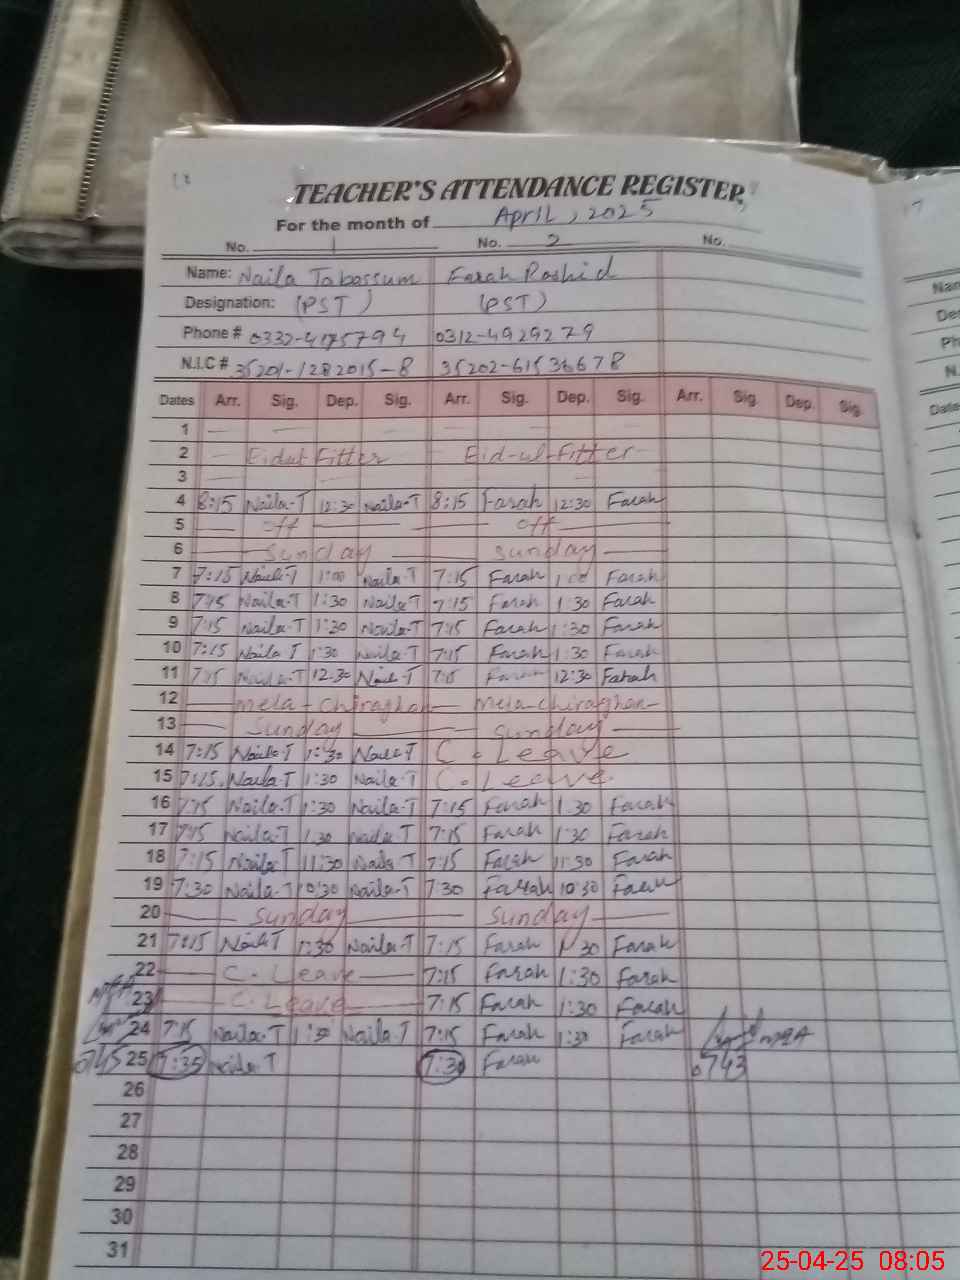 TEACHER'S ATTENDANCE REGISTER
For the month of April, 2025
No. 1 No. 2 No.
Name: Naila Tabassum Farah Rashid
Designation: (PST) (PST)
Phone # 0312-4929279
N.I.C # 35202-61536678
Dates Arr. Sig. Dep. Sig. Arr. Sig. Dep. Sig. Arr. Sig. Dep. Sig.
1
2 Eidul Fitter Eid-ul-Fitter
3
4 8:15 Naila-T 12:30 Naila-T 8:15 Farah 12:30 Farah
5 off off
6 Sunday sunday
7 7:15 Naila-T 1:00 Naila-T 7:15 Farah 1:00 Farah
8 7:15 Naila-T 1:30 Naila-T 7:15 Farah 1:30 Farah
9 7:15 Naila-T 1:30 Naila-T 7:15 Farah 1:30 Farah
10 7:15 Naila T 1:30 Naila-T 7:15 Farah 1:30 Farah
11 7:15 Naila-T 12:30 Naila T 7:15 Farah 12:30 Farah
12 mela-chiraghan mela-chiraghan
13 Sunday sunday
14 7:15 Naila-T 1:30 Naila-T C. Leave
15 7:15 Naila-T 1:30 Naila-T C. Leave
16 7:15 Naila-T 1:30 Naila-T 7:15 Farah 1:30 Farah
17 7:15 Naila-T 1:30 Naila-T 7:15 Farah 1:30 Farah
18 7:15 Naila-T 11:30 Naila-T 7:15 Farah 11:30 Farah
19 7:30 Naila-T 10:30 Naila-T 7:30 Farah 10:30 Farah
20 Sunday Sunday
21 7:15 Naila-T 1:30 Naila-T 7:15 Farah 1:30 Farah
22 C. Leave 7:15 Farah 1:30 Farah
23 C. Leave 7:15 Farah 1:30 Farah
24 7:15 Naila-T 1:30 Naila-T 7:15 Farah 1:30 Farah
0745 25 7:35 Naila-T 7:30 Farah 0743
26
27
28
29
30
31
25-04-25 08:05